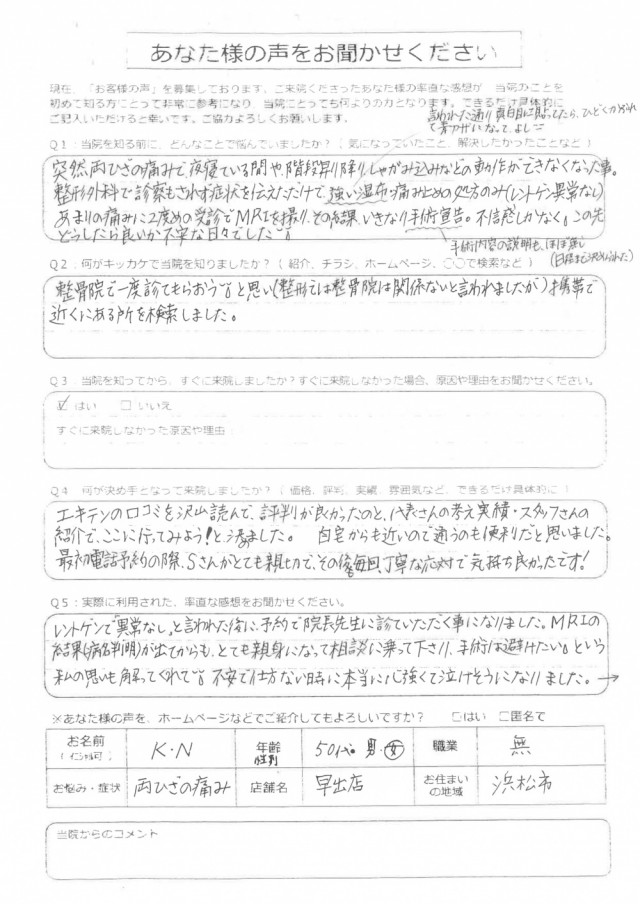 あなた様の声をお聞かせください
現在、「お客様の声」を募集しております。ご来院くださったあなた様の率直な感想が、当院のことを
初めて知る方にとって非常に参考になり、当院にとっても何よりの力となります。できるだけ具体的に
ご記入いただけると幸いです。ご協力よろしくお願いします。
言われた通り真面目に貼ってたら、ひどくかぶれ
て
Q1：当院を知る前に、どんなことで悩んでいましたか？（気になっていたこと、解決したかったことなど）
突然両ひざの痛みで夜寝ている間や、階段昇り降り、しゃがみ込みなどの動作ができなくなった事。
整形外科で診察もされず症状を伝えただけで、強い湿布、痛み止めの処方のみ（レントゲン異常なし）
あまりの痛みに2度めの受診でMRIを撮り、その結果、いきなり手術宣告。不信感しかなく。この先
どうしたら良いか不安な日々でした。
手術内容の説明も、ほぼ無し
（日程まで決められた）
Q2：何がキッカケで当院を知りましたか？（紹介、チラシ、ホームページ、○○で検索など）
整骨院で一度診てもらおう。と思い（整形では整骨院は関係ないと言われましたが）携帯で
近くにある所を検索しました。
Q3 当院を知ってから、すぐに来院しましたか？すぐに来院しなかった場合、原因や理由をお聞かせください。
☑ はい □ いいえ
すぐに来院しなかった原因や理由
Q4 何が決め手となって来院しましたか？（価格、評判、実績、雰囲気など、できるだけ具体的に）
エキテンの口コミを沢山読んで、評判が良かったのと、代表さんの考え実績・スタッフさんの
紹介で、ここに行ってみよう！と決めました。 自宅からも近いので通うのも便利だと思いました。
最初電話予約の際、Sさんがとても親切で、その後も毎回丁寧な応対で気持ち良かったです！
Q5：実際に利用された、率直な感想をお聞かせください。
レントゲンで"異常なし"と言われた後に、予約で院長先生に診ていただく事になりました。MRIの
結果（病名判明）が出てからも、とても親身になって相談に乗って下さり、手術は避けたい。という
私の思いも解ってくれて。不安で仕方ない時に本当に心強くて泣けそうになりました。→
※あなた様の声を、ホームページなどでご紹介してもよろしいですか？ □はい □匿名で
お名前 （イニシャル可） K・N 年齢 性別 50代 男・女 職業 無
お悩み・症状 両ひざの痛み 店舗名 早出店 お住まいの地域 浜松市
当院からのコメント